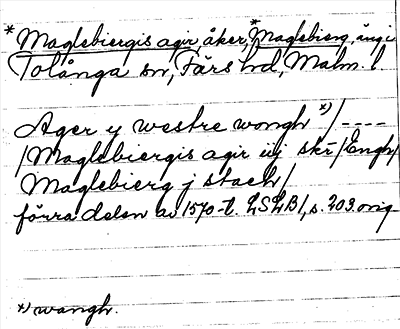 *Maglebiergis agir, åker, *Maglebierg, äng i
Tolånga sn, Färs hd, Malm. l.
Ager y westre wongh *) / ----
/ Maglebiergis agir iij skr / Engh /
Maglebierg j stach /
förra delen av 1570-t. LSLB1, s. 203. orig.
*) wangh.